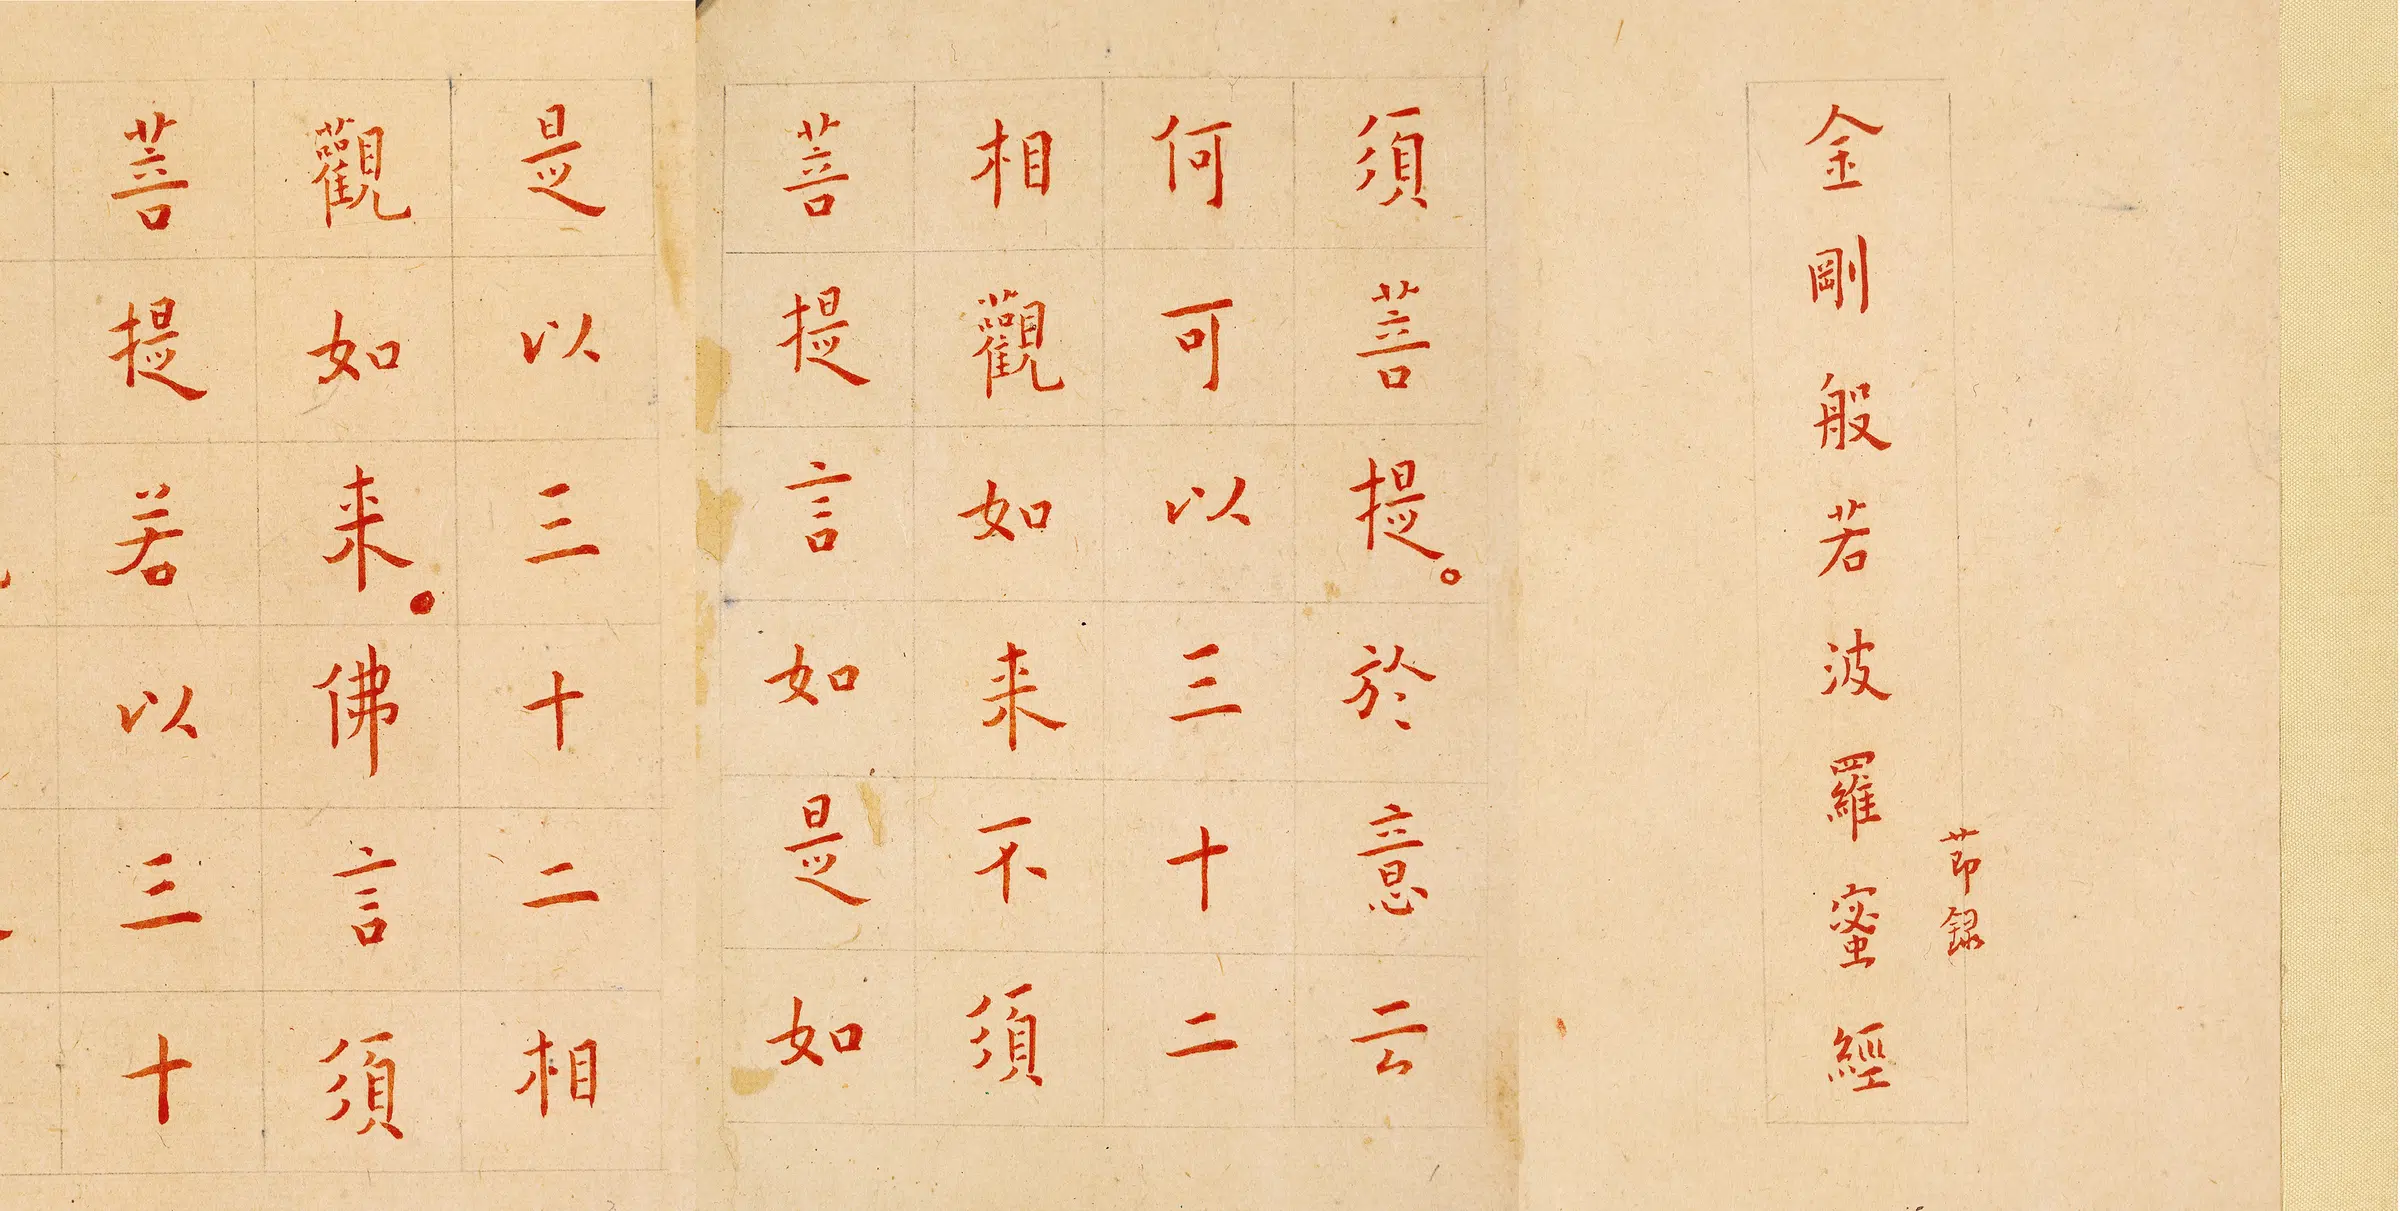 金剛般若波羅蜜經
節録
須菩提。於意云
何可以三十二
相觀如来不須
菩提言如是如
是以三十二相
觀如来。佛言須
菩提若以三十